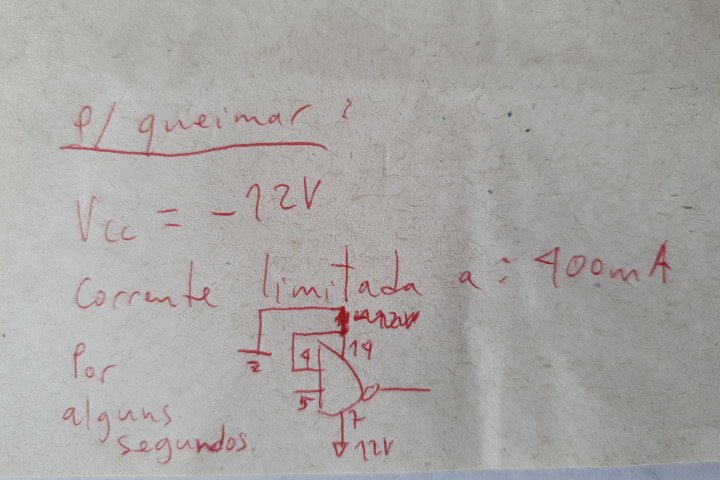 P/ queimar:
Vcc = -12V
Corrente limitada a: 400mA
Por
alguns
segundos.
4
14
5
7
12V